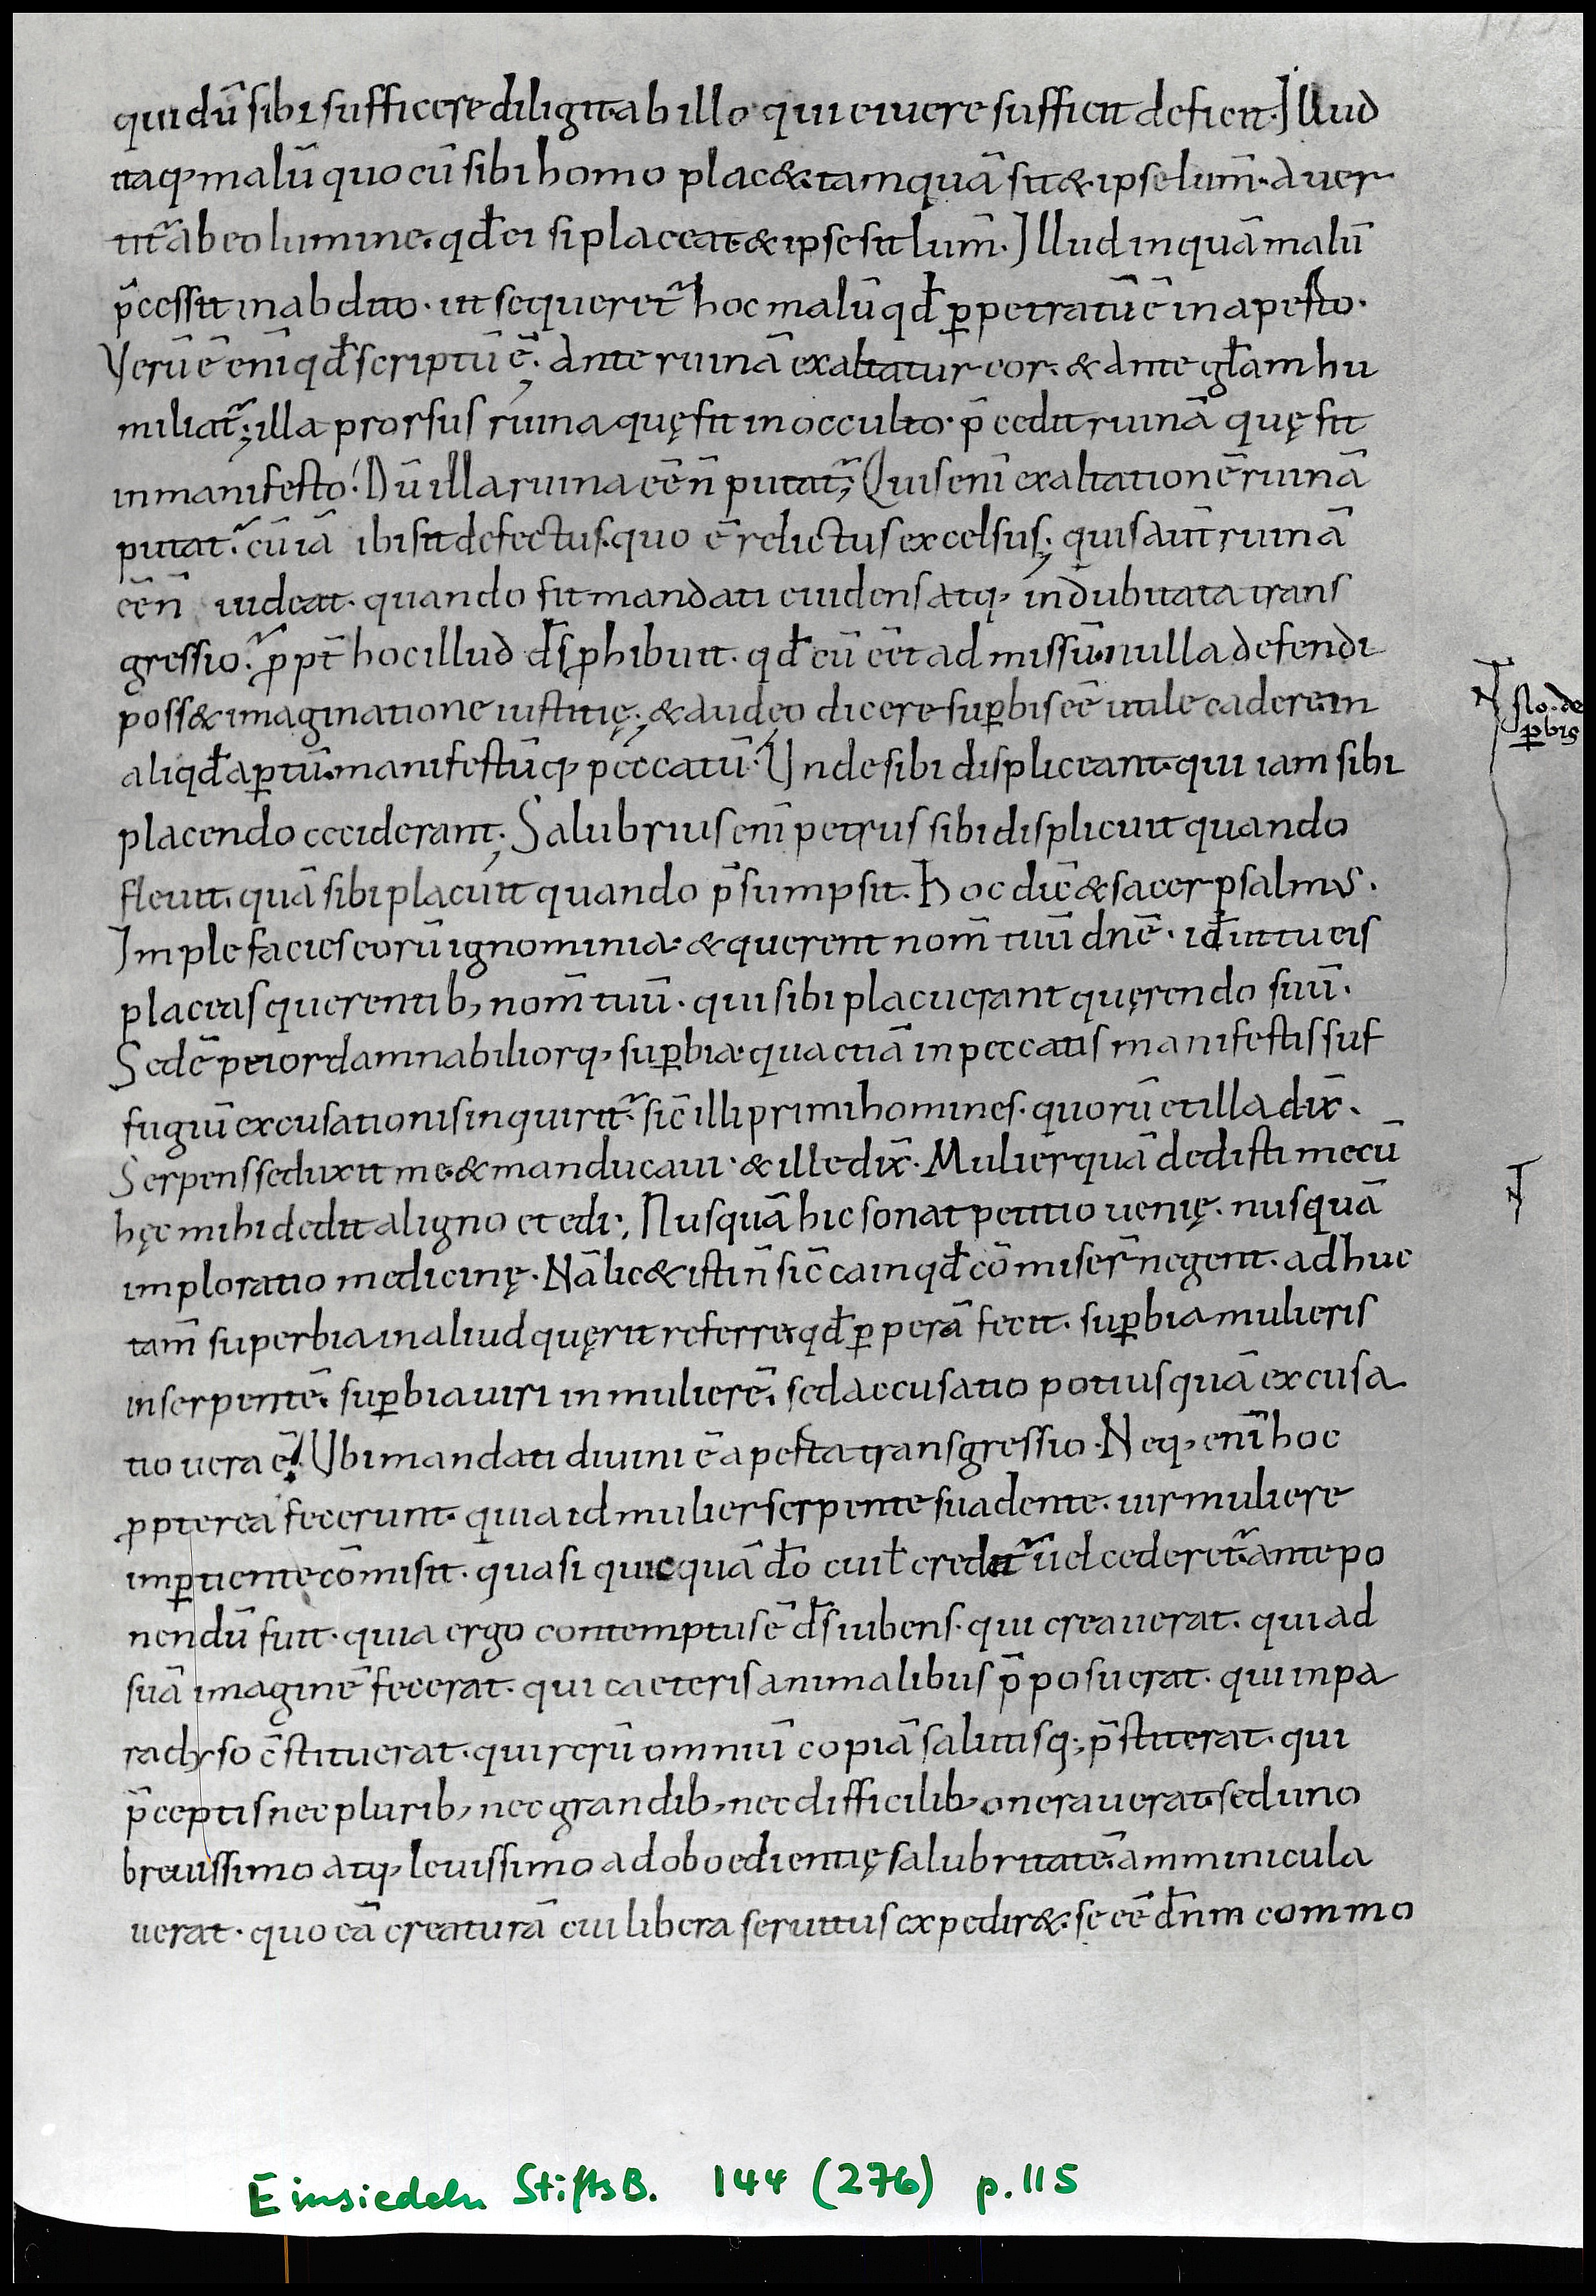 qui dū sibi sufficere diligit ab illo qui ei uere sufficit deficit. Illud
itaq; malū quo cū sibi homo plac&. tamquā sit & ipse lum̄. auer
tit᷑ ab eo lumine. qđ ei si placeat & ipse sit lum̄. Illud inquā malū
p̄cessit in abdito. ut sequeret᷑ hoc malū qđ ꝑpetratū ē in aperto.
Verū ē enī qđ scriptū ē; ante ruinā exaltatur cor. & ante głam hu
miliat᷑; illa prorsus ruina quę fit in occulto. p̄cedit ruinā quę fit
in manifesto. Dū illa ruina eē n̄ putat᷑; Quis enī exaltationē ruinā
putat᷑. cū iā ibi sit defectus. quo ē relictus excelsus; quis aut̄ ruinā
eē n̄ uideat. quando fit mandati euidens atq; indubitata trans
gressio. ꝓpt̄ hoc illud d̄s ꝓhibuit. qđ cū eēt admissū. nulla defendi
poss& imaginatione iustitię; & audeo dicere suꝑbis eē utile cadere in
aliqđ aꝑtū. manifestūq; peccatū. Unde sibi displiceant. qui iam sibi
placendo ceciderant; Salubrius enī petrus sibi displicuit quando
fleuit. quā sibi placuit quando p̄sumpsit. Hoc dic̄ & sacer psalmus.
Imple facies eorū ignominia. & querent nom̄ tuū dn̄e. id ē ut tu eis
placeas querentib; nom̄ tuū. qui sibi placuerant quęrendo suū.
Sed ē peior damnabiliorq; suꝑbia. qua etiā in peccatis manifestis suf
fugiū excusationis inquirit᷑. sic̄ illi primi homines. quorū et illa dix̄.
Serpens seduxit me. & manducaui. & ille dix̄. Mulier quā dedisti mecū
hęc mihi dedit a ligno et edi; Nusquā hic sonat petitio uenię. nusquā
imploratio medicinę. Nā lic& isti n̄ sic̄ cain qđ cōmiser̄ negent. adhuc
tam̄ superbia in aliud quęrit referre. qđ ꝑperā fecit. suꝑbia mulieris
in serpentē. suꝑbia uiri in mulierē. sed accusatio potius quā excusa
tio uera ē. Ubi mandati diuini ē aperta transgressio. Neq; enī hoc
ꝓpterea fecerunt. quia id mulier serpente suadente. uir muliere
imꝑtiente cōmisit. quasi quicquā d̄o cui ł credit᷑ uel cederet᷑ antepo
nendū fuit. quia ergo contemptus ē d̄s iubens. qui creauerat. qui ad
suā imaginē fecerat. qui caeteris animalibus p̄posuerat. qui in pa
radyso c̄stituerat. qui rerū omniū copiā salutisq; p̄stiterat. qui
p̄ceptis nec plurib; nec grandib; nec difficilib; onerauerat. sed uno
breuissimo atq; leuissimo ad oboedientię salubritatē amminicula
uerat. quo eā creaturā cui libera seruitus expedir&. se eē dn̄m commo
flo. de
ꝑbis
Einsiedeln StiftsB. 144 (276) p. 115